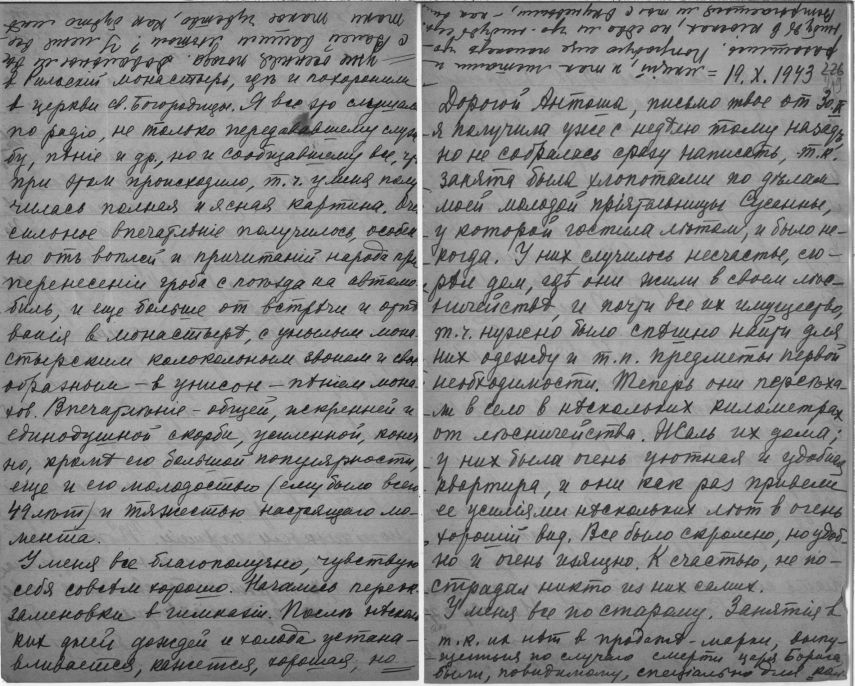 в Рильскій монастырь, гдѣ и похоронили
в церкви св. Богородицы. Я все это слушала
по радіо, не только передававшему служ
бу, пѣніе и др., но и сообщавшему все, что
при этом происходило, т.ч. у меня полу
чилась полная и ясная картина. Оч.
сильное впечатлѣніе получилось, особен
но отъ воплей и причитаній народа при
перенесеніи гроба с поѣзда на автомо
биль, и еще больше от встрѣчи и отпѣ
ванія в монастырѣ, с унылым мона
стырским колокольным звоном и свое
образным – в унисон – пѣніем мона
хов. Впечатлѣніе – общей, искренней и
единодушной скорби, усиленной, конеч
но, кромѣ его большой популярности,
еще и его молодостью (ему было всего
49 лѣт) и тяжестью настоящаго мо-
мента.
У меня все благополучно, чувствую
себя совсѣм хорошо. Начались переэк
заменовки в гимназіи. Послѣ нѣсколь
ких дней дождей и холода устана-
вливается, кажется, хорошая, но
= 19.X.1943 226
Дорогой Антоша, письмо твое от 30.IX
я получила уже с недѣлю тому назадъ
но не собралась сразу написать, т.к.
занята была хлопотами по дѣлам
моей молодой пріятельницы Сусанны,
у которой гостила лѣтом, и было не-
когда. У них случилось несчастье, сго-
рѣл дом, гдѣ они жили в своем лѣс-
ничествѣ и почти все их имущество,
т.ч. нужно было спѣшно найти для
них одежду и т.п. предметы первой
необходимости. Теперь они переѣха-
ли в село в нѣскольких километрах
от лѣсничества. Жаль их дома;
у них была очень уютная и удобная
квартира, и они как раз привели
ее усиліями нѣскольких лѣт в очень
хорошій вид. Все было скромно, но удоб-
но и очень изящно. К счастью, не по-
страдал никто из них самих.
У меня все по старому. Занятія в
т.к. их нѣт в продажѣ – марки, выпу-
щенныя по случаю смерти царя Бориса
были, повидимому, спеціально для